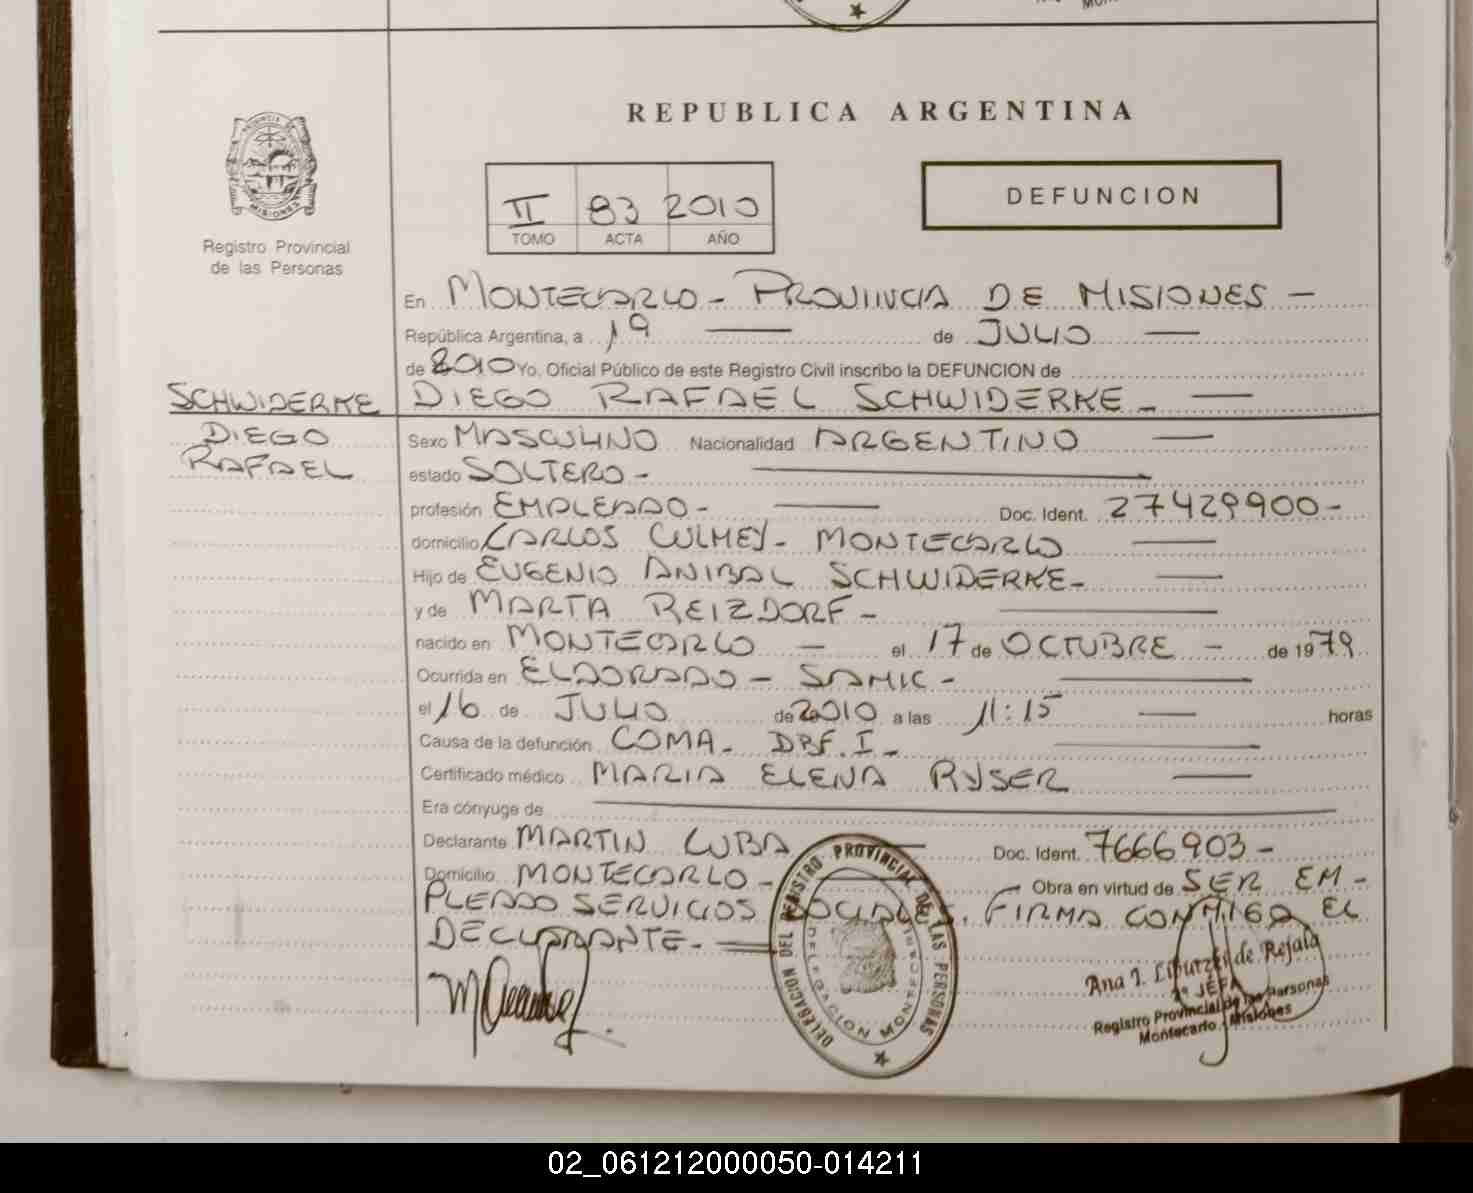 REPUBLICA ARGENTINA
PROVINCIA DE
MISIONES
Registro Provincial
de las Personas
DEFUNCION
II 83 2010
TOMO ACTA AÑO
En MONTECARLO - PROVINCIA DE MISIONES -
República Argentina, a 19 de JULIO
de 2010 Yo, Oficial Público de este Registro Civil inscribo la DEFUNCION de
SCHWIDERKE DIEGO RAFAEL SCHWIDERKE -
DIEGO
RAFAEL
Sexo MASCULINO Nacionalidad ARGENTINO
estado SOLTERO -
profesión EMPLEADO - Doc. Ident. 27429900 -
domicilio CARLOS CULMEY - MONTECARLO
Hijo de EUGENIO ANIBAL SCHWIDERKE -
y de MARTA REIZDORF -
nacido en MONTECARLO - el 17 de OCTUBRE - de 1979
Ocurrida en ELDORADO - SAMIC -
el 16 de JULIO de 2010 a las 11:15 horas
Causa de la defunción COMA - DBT. I -
Certificado médico MARIA ELENA RYSER
Era cónyuge de
Declarante MARTIN CUBA Doc. Ident. 7666903 -
Domicilio MONTECARLO - Obra en virtud de SER EM -
PLEADO SERVICIOS SOCIALES. FIRMA CONMIGO EL
DECLARANTE -
DELEGACION DEL REGISTRO PROVINCIAL DE LAS PERSONAS
DELEGACION MONTECARLO
Ana I. de Rejala
2º JEFA
Registro Provincial de las Personas
Montecarlo - Misiones
02_061212000050-014211